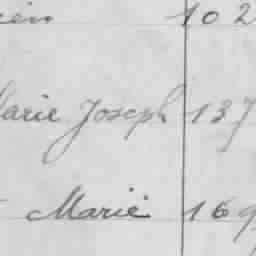 102
Marie Joseph 137
Marie 169